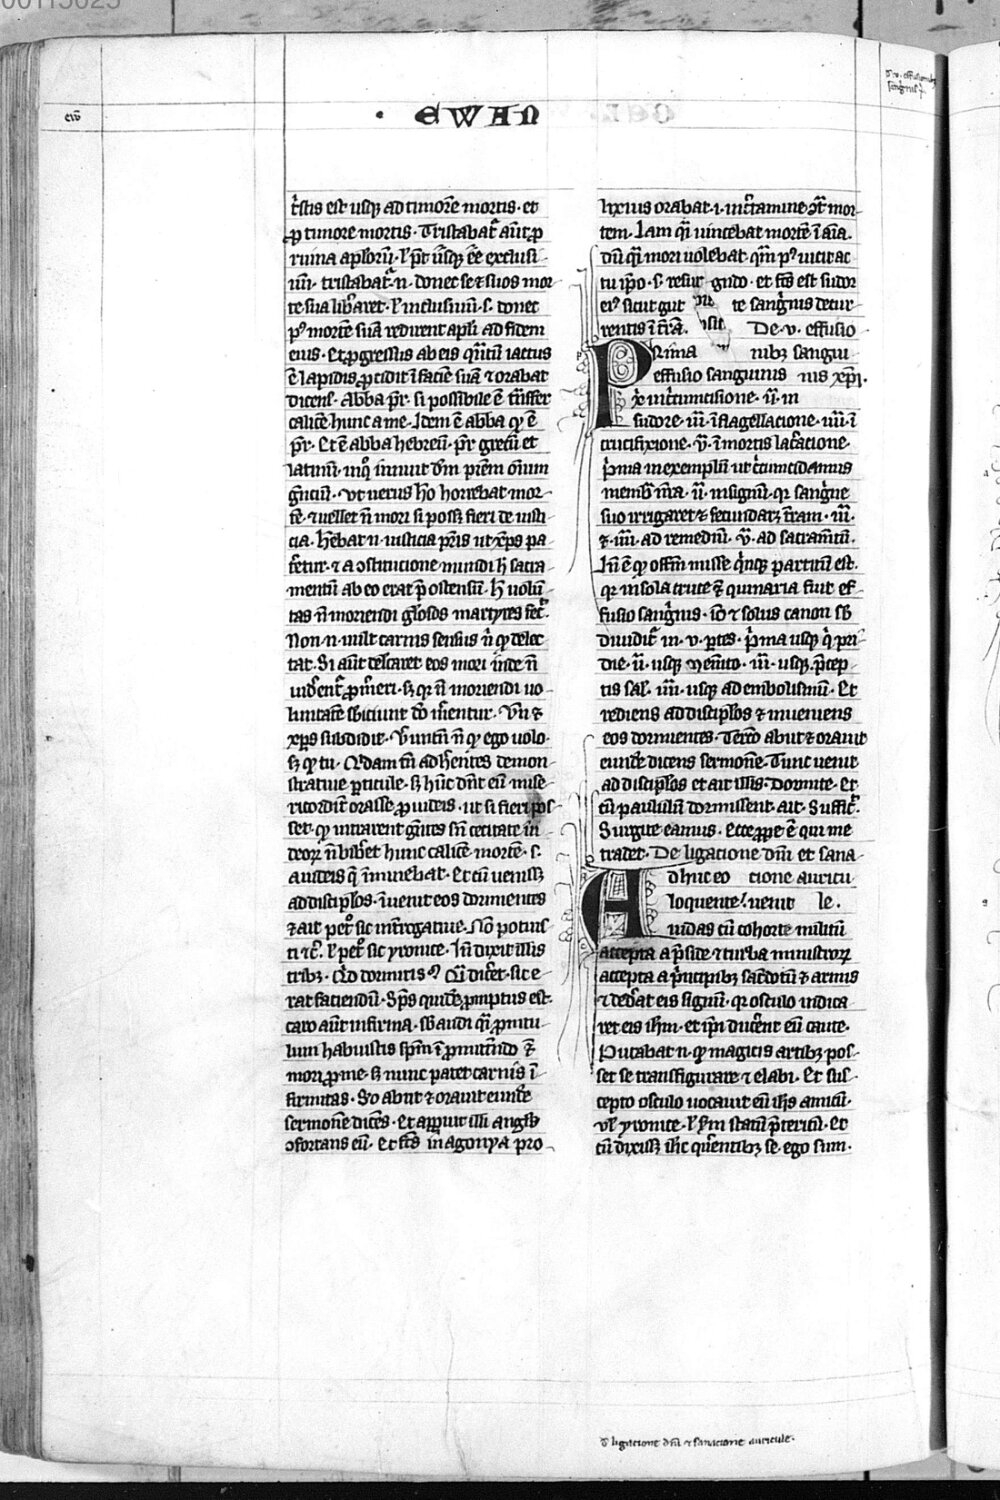 00113023
ew̄
· EWAN
t̾stis est usq̨ ad timorē mortis · et
ꝓ timore mortis · Tristabat᷑ aūt ꝓ
ruina aplorū · ł pt̄ usq̨ ēē exclusi-
uū · tristabat᷑ · n · donec se ⁊ suos mor-
te sua lib̾aret · ł inclusiuū · s · donec
p⁹ mortē suā redirent apli ad fidem
eius · Et ꝓgressus ab eis q̄ntū iactus
ē lapidis ꝓcidit ī faciē suā ⁊ orabat
dicens · Abba pr̄ · si possibile ē trāsfer
calicē hunc a me · Idem ē abba qd̾ ē
pr̄ · Et ē abba hebreū · pr̄ grecū et
latinū ·
gentiū · Ut uerus hō horrebat mor-
tē · ⁊ uellet n̄ mori si poss̾ fieri de iusti-
cia · Hēbat · n · iusticia pr̄is ut xp̄s pa-
teret᷑ · ⁊ a ꝯstitucione mundi h̾ sacra-
mentū ab eo erat p̄ostensū · h̾ uolū-
tas n̄ moriendi gl̾osos martyres fec̾ ·
Non · n · uult carnis sensus n̄ qd̾ delec-
tat · Si aūt delc̄aret eos mori inde n̄
uiderent᷑ ꝓm̾eri · sꝫ qr̾ n̄ moriendi uo-
luntatē sbiciunt dō m̾entur · Vn̄ ⁊
xp̄s subdidit · Verūtn̄ n̄ qd̾ ego uolo ·
sꝫ qd̾ tu · Qdam tn̄ adh̾entes demon-
stratiue ꝑticule · sꝫ hunc dn̄t eū mise-
ricordit̾ orasse ꝓ iudeis · ut si fieri pos-
set · qd̾ intrarent gentes sn̄ cecitate iu-
deoꝝ n̄ biberet hunc calicē mortē · s ·
a iudeis q̄ īminebat · Et cū ueniss̾
ad disciplos · īuenit eos dormientes
⁊ ait pet̾o sic int̾rogatiue · Nō potuis-
ti ⁊c̄ · ł pet̾o sic yronice · Iн̄ dixit illis
tribꝫ · Qd̾ dormitis? Cū dic̾et · sic e-
rat faciendū · Sp̄s quidē ꝓmptus est ·
caro aūt infirma · sb̾audi q̄i ꝓnitu-
lum habuistis spm̄ ī ꝓmittendo
mori ꝓ me · sꝫ nunc patet carnis ī-
firmitas · Sc̾o abiit ⁊ orauit eundē
sermonē dicēs · Et apparuit illi angl̾s
ꝯfortans eū · Et fcs̄ in agonya pro-
lixius orabat · i · in c̾tamine ꝯt̾ mor-
tem · Iam q̄i uincebat mortē ī aīa ·
dū q̄i mori uolebat · qm̄ p⁹ uicit ac-
tu ip̄o · s · resurgendo · et fcs̄ est sudor
ei⁹ sicut gutte sanguinis decur-
rentis ī t̾rā · De · v · effusio-
Prima nibꝫ sangui-
effusio sanguinis nis xp̄i ·
xi in c̾cumcisione · ii · in
sudore · iii · ī flagellacione · iiii · ī
crucifixione · v · ī mortis lat̾acione ·
p̾ma in exemplū ut c̾cumcidamus
memb̾ nr̄a · ii · in signū · qr̾ sanguine
suo irrigaret ⁊ fecundaret t̾ram · iii ·
⁊ · iiii · ad remediū · v · ad sacramentū ·
In̄ ē qd̾ offm̄ misse q̾nq̨ partitū est ·
qr̾ in sola cruce quinaria fuit ef-
fusio sanguinis · iō ⁊ solus canon sb̾-
diuidit᷑ in · v · ptes · p̾ma usq̨ q̾ pri-
die · ii · usq̨ memto · iii · usq̨ p̄cep-
tis sal̾ · iiii · usq̨ ad embolismū · Et
rediens ad disciplos ⁊ inueniens
eos dormientes · Tercio abiit ⁊ orauit
eundē dicens sermonē · Tunc uenit
ad disciplos et ait illis · Dormite · Et
cū paululū dormissent · ait · Suffic̾ ·
Surgite eamus · Ecce ꝓpe ē qui me
tradet · De ligacione dnī et sana-
Adhuc eo cione auricu-
loquente · uenit le ·
iudas cū cohorte militū
accepta a p̄side · ⁊ turba ministroꝝ
accepta a p̾ncipibꝫ sac̾dotū ⁊ armis
⁊ ded̾at eis signū · qr̾ osculo indica-
ret eis ihm̄ · et ip̄i duc̾ent eū caute ·
Putabat · n · qd̾ magicis artibꝫ pos-
set se transfigurare ⁊ elabi · Et sus-
cepto osculo uocauit eū ihs̄ amicū ·
ul̾ yronice · ł scdm̄ statū p̄teritū · Et
cū dixiss̾ ihc̄ querentibꝫ se · ego sum ·
d̾ · v · effusionibꝫ
sanguinis
d̾ ligacione dnī ⁊ sanacione auricule ·